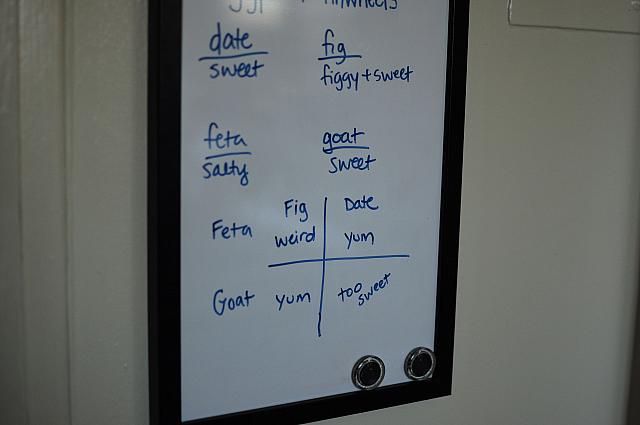 date fig
sweet figgy+sweet
feta goat
salty sweet
Fig Date
Feta weird yum
Goat yum too sweet